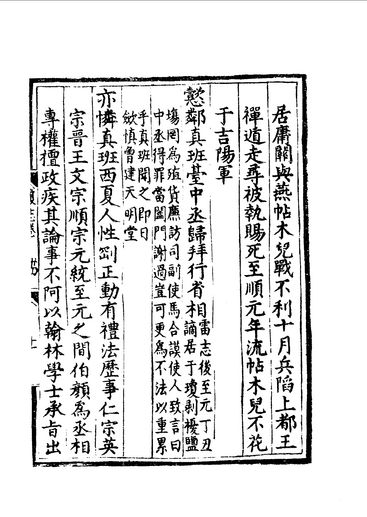 居庸關與燕帖木兒戰不利十月兵陷上都王
禪遁走尋被執賜死至順元年流帖木兒不花
于吉陽軍
懿鄰真班臺中丞歸拜行省相
雷志後至元丁丑
謫居于瓊剝擾鹽
塲罔為殖貨廉訪司副使馬合謨使人致言曰
中丞得罪當闔門謝過豈可更為不法以重累
乎真班聞之即日
斂慎曾建天明堂
亦憐真班西夏人性剛正動有禮法歷事仁宗英
宗晉王文宗順宗元統至元之間伯顏為丞相
專權擅政疾其論事不阿以翰林學士承旨出